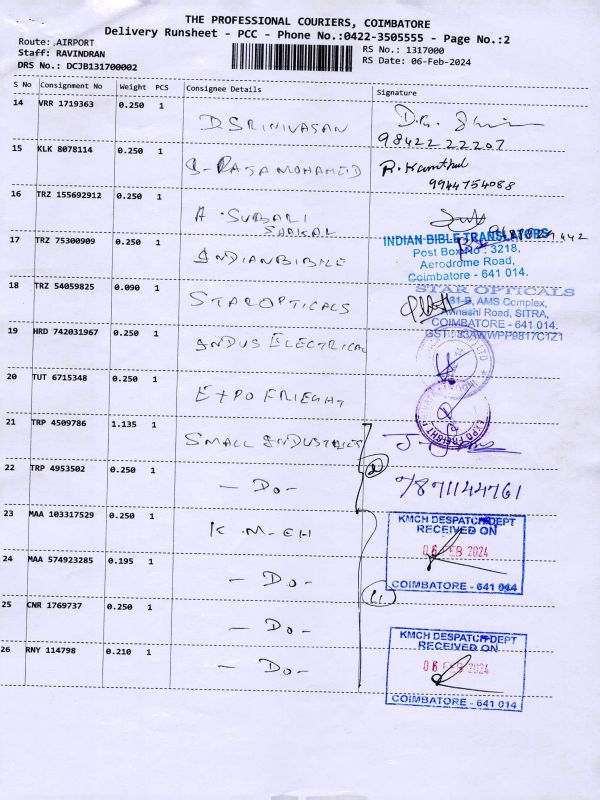 THE PROFESSIONAL COURIERS, COIMBATORE
Delivery Runsheet - PCC - Phone No.:0422-3505555 - Page No.:2
Route: AIRPORT
Staff: RAVINDRAN
DRS No.: DCJB131700002
RS No.: 1317000
RS Date: 06-Feb-2024
S No Consignment No Weight PCS Consignee Details Signature
14 VRR 1719363 0.250 1 D.SRINIVASAN
98422 22207
15 KLK 8078114 0.250 1 S-RAJAMOHAMEID R. Kamthul
9944754088
16 TRZ 155692912 0.250 1 A.SUBBARI
SHAKAR
17 TRZ 75300909 0.250 1 INDIANBIBILE
INDIAN BIBLE TRANSLATORS
Post Box No : 3218,
Aerodrome Road,
Coimbatore - 641 014.
18 TRZ 54059825 0.090 1 STAROPTICALS
STAR OPTICALS
61-B, AMS Complex,
Avinashi Road, SITRA,
COIMBATORE - 641 014.
19 HRD 742031967 0.250 1 INDUS ELECTRICAL
20 TUT 6715348 0.250 1 EXPO FRIEGHT
EXPO FREIGHT
21 TRP 4509786 1.135 1 SMALL INDUSTRIES
22 TRP 4953502 0.250 1 - DO - 2 7871144761
23 MAA 103317529 0.250 1 K.M-CH
KMCH DESPATCH DEPT
RECEIVED ON
06 FEB 2024
COIMBATORE - 641 014
24 MAA 574923285 0.195 1 - DO -
25 CNR 1769737 0.250 1 - DO -
26 RNY 114798 0.210 1 - DO -
KMCH DESPATCH DEPT
RECEIVED ON
06 FEB 2024
COIMBATORE - 641 014